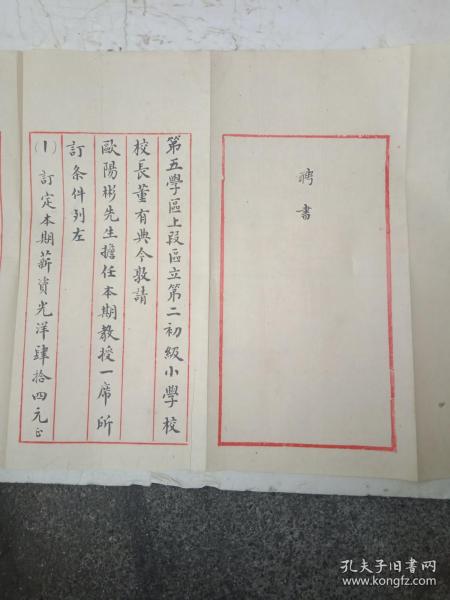 聘書
第五學區上段區立第二初級小學校
校長董有典今敦請
歐陽彬先生擔任本期教授一席所
訂条件列左
(1)訂定本期薪資光洋肆拾四元正
孔夫子旧书网
www.kongfz.com